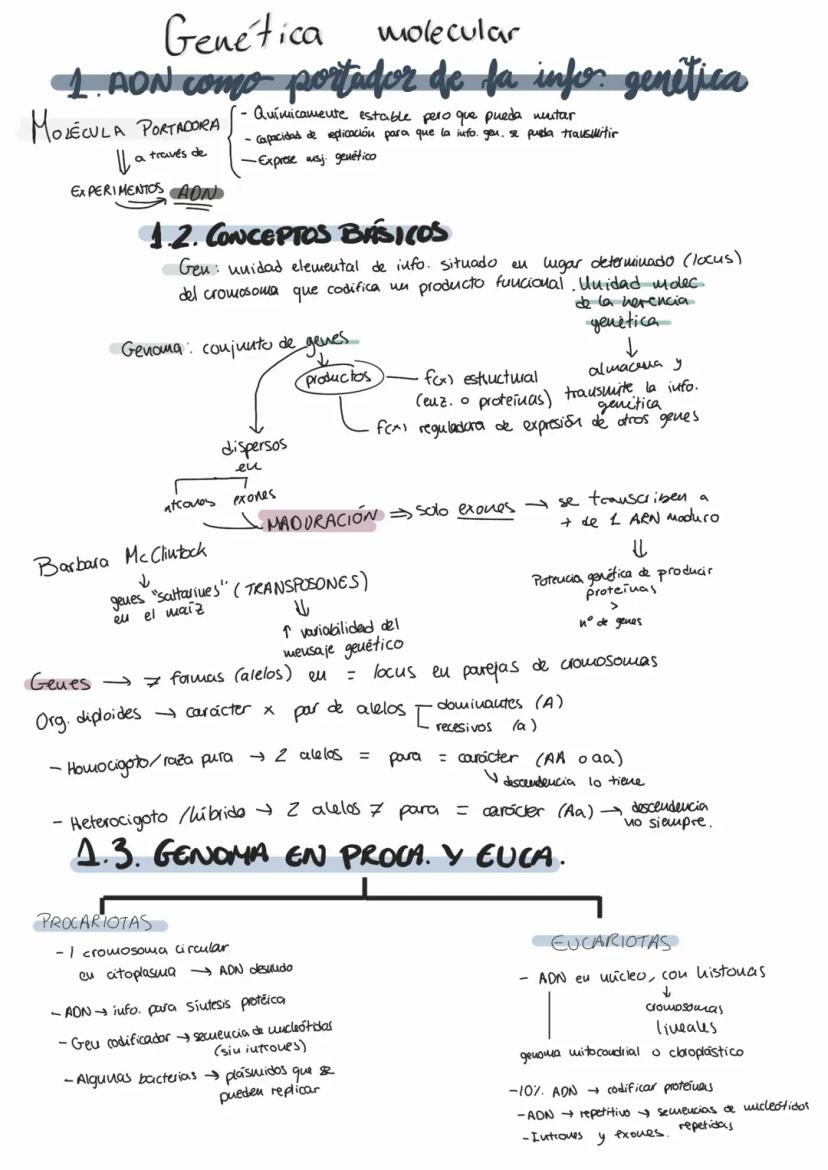 Genética molecular
1. ADN como portador de la info. genética
MOLÉCULA PORTADORA
- Químicamente estable pero que pueda mutar
- capacidad de replicación para que la info. gen. se pueda transmitir
- Exprese msj. genético
⇓ a través de
EXPERIMENTOS → ADN
1.2. CONCEPTOS BÁSICOS
Gen: unidad elemental de info. situado en lugar determinado (locus)
del cromosoma que codifica un producto funcional. Unidad molec
de la herencia
genética
↓
almacena y
transmite la info.
genética
Genoma: conjunto de genes
productos
f(x) estructural
(enz. o proteínas)
f(x) reguladora de expresión de otros genes
dispersos
en
intrones exones
MADURACIÓN ⇒ solo exones → se transcriben a
+ de 1 ARN maduro
⇓
Potencia genética de producir
proteínas
>
nº de genes
Barbara McClintock
↓
genes "saltarines" (TRANSPOSONES)
en el maíz
⇓
↑ variabilidad del
mensaje genético
Genes → ≠ formas (alelos) en = locus en parejas de cromosomas
Org. diploides → carácter x par de alelos
dominantes (A)
recesivos (a)
- Homocigoto/raza pura → 2 alelos = para = carácter (AA o aa)
↘ descendencia lo tiene
- Heterocigoto/híbrido → 2 alelos ≠ para = carácter (Aa) → descendencia
no siempre.
1.3. GENOMA EN PROCA. Y EUCA.
PROCARIOTAS
- 1 cromosoma circular
en citoplasma → ADN desnudo
- ADN → info. para síntesis protéica
- Gen codificador → secuencia de nucleótidos
(sin intrones)
- Algunas bacterias → plásmidos que se
pueden replicar
EUCARIOTAS
- ADN en núcleo, con histonas
↓
cromosomas
lineales
genoma mitocondrial o cloroplástico
- 10% ADN → codificar proteínas
- ADN → repetitivo → secuencias de nucleótidos
repetidas
- Intrones y exones.